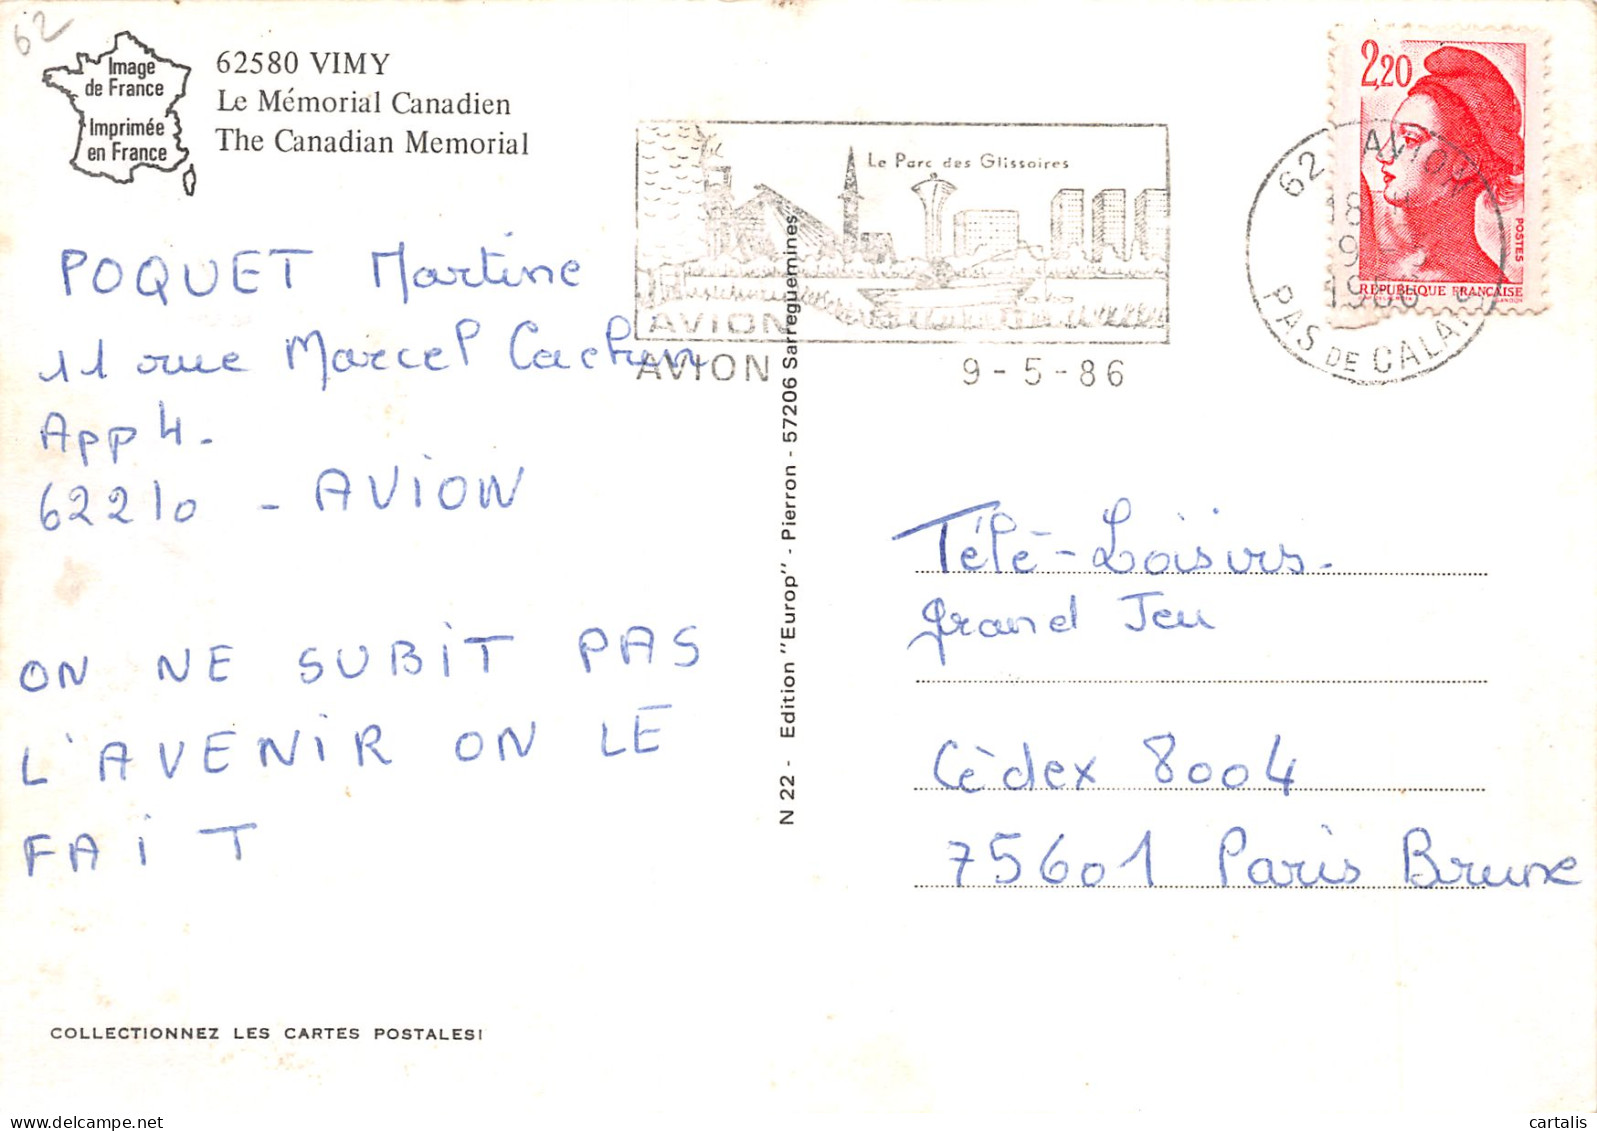 62
Image
de France
Imprimée
en France
62580 VIMY
Le Mémorial Canadien
The Canadian Memorial
Le Parc des Glissoires
AVION
AVION
9-5-86
2,20
POSTES
RÉPUBLIQUE FRANÇAISE
62 AVION
18 H
9-5
1986
PAS DE CALAIS
POQUET Martine
11 rue Marcel Cachin
App 4.
62210 - AVION
ON NE SUBIT PAS
L'AVENIR ON LE
FAIT
COLLECTIONNEZ LES CARTES POSTALES!
N 22 - Edition "Europ" - Pierron - 57206 Sarreguemines
Télé-Loisirs.
grand Jeu
Cèdex 8004
75601 Paris Brune
cartalis